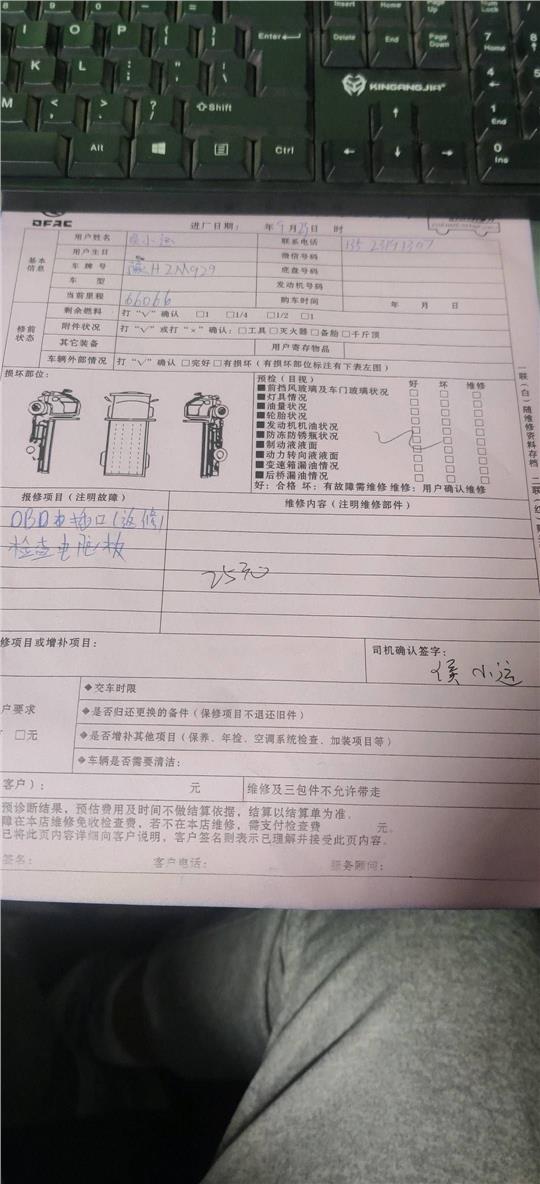 Insert Home Page Up Num Lock
I O P { [ } ] Enter Delete End Page Down 7 Home 8
K L : ; " ' | \ KINGANGJIA 4
M < , > . ? / Shift ↑ 1 End
Alt Ctrl ← ↓ → 0 Ins
DFAC
进厂日期： 年 9 月 25 日 时
用户姓名 联系电话
用户生日 微信号码
基本信息
车牌号 H2M929 底盘号码
车型 发动机号码
当前里程 66066 购车时间 年 月 日
修前状态
剩余燃料 打“√”确认 □1 □1/4 □1/2 □1
附件状况 打“√”或打“×”确认：□工具□灭火器□备胎□千斤顶
其它装备 用户寄存物品
车辆外部情况 打“√”确认 □完好□有损坏（有损坏部位标注有下表左图）
损坏部位：
预检（目视） 好 坏 维修
■前挡风玻璃及车门玻璃状况 □ □ □
■灯具情况 □ □ □
■油量状况 □ □ □
■轮胎状况 □ □ □
■发动机机油状况 □ □ □
■防冻防锈瓶状况 □ □ □
■制动液液面 □ □ □
■动力转向液液面 □ □ □
■变速箱漏油情况 □ □ □
■后桥漏油情况 □ □ □
好：合格 坏：有故障需维修 维修：用户确认维修
一联（白）随维修资料存档 二联
报修项目（注明故障） 维修内容（注明维修部件）
OBD 插口（返修）
检查电脑板
2530
修项目或增补项目：
司机确认签字：
侯小运
◆交车时限
户要求 ◆是否归还更换的备件（保修项目不退还旧件）
□无 ◆是否增补其他项目（保养、年检、空调系统检查、加装项目等）
◆车辆是否需要清洁：
客户）： 元 维修及三包件不允许带走
预诊断结果，预估费用及时间不做结算依据，结算以结算单为准。
障在本店维修免收检查费，若不在本店维修，需支付检查费 元。
已将此页内容详细向客户说明，客户签名则表示已理解并接受此页内容。
签名： 客户电话： 服务顾问：